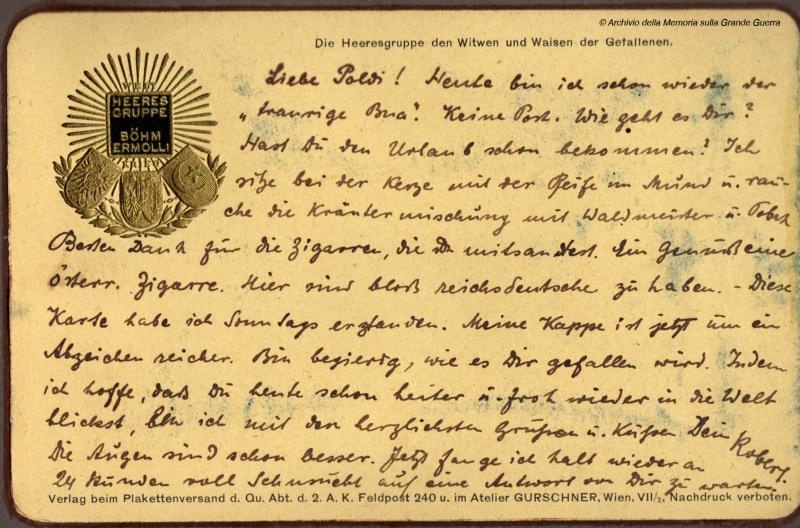 © Archivio della Memoria sulla Grande Guerra
Die Heeresgruppe den Witwen und Waisen der Gefallenen.
HEERES
GRUPPE
BÖHM
ERMOLLI
Liebe Poldi! Heute bin ich schon wieder der
„traurige Bua“. Keine Post. Wie geht es Dir?
Hast Du den Urlaub schon bekommen? Ich
sitze bei der Kerze mit der Pfeife im Mund u. rau-
che die Kräutermischung mit Waldmeister u. Tabak
Besten Dank für die Zigarren, die Du mitsandtest. Ein Genuß eine
österr. Zigarre. Hier sind bloß reichsdeutsche zu haben. - Diese
Karte habe ich Sonntags erstanden. Meine Kappe ist jetzt um ein
Abzeichen reicher. Bin begierig, wie es Dir gefallen wird. Indem
ich hoffe, daß Du heute schon heiter u. froh wieder in die Welt
blickst, bin ich mit den herzlichsten Grüßen u. Küßen Dein Robert.
Die Augen sind schon besser. Jetzt fange ich halt wieder an
24 Stunden voll Sehnsucht auf eine Antwort von Dir zu warten.
Verlag beim Plakettenversand d. Qu. Abt. d. 2. A. K. Feldpost 240 u. im Atelier GURSCHNER, Wien, VII/2, Nachdruck verboten.